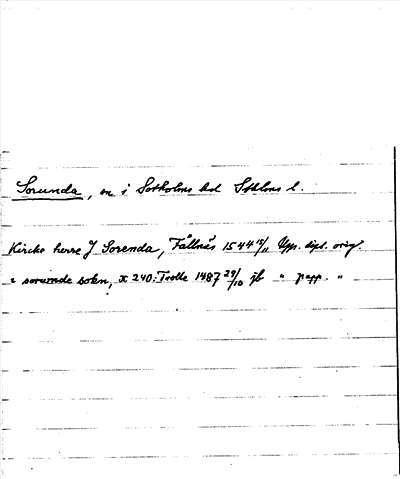 Sorunda, sn i Sotholms hd Sthlms l.
Kircko herre J Sorenda, Fållnäs 1544 15/11 Upps. dipl. orig.
i sorunde sokn, X 240: Trolle 1487 29/10 jb " papp. "